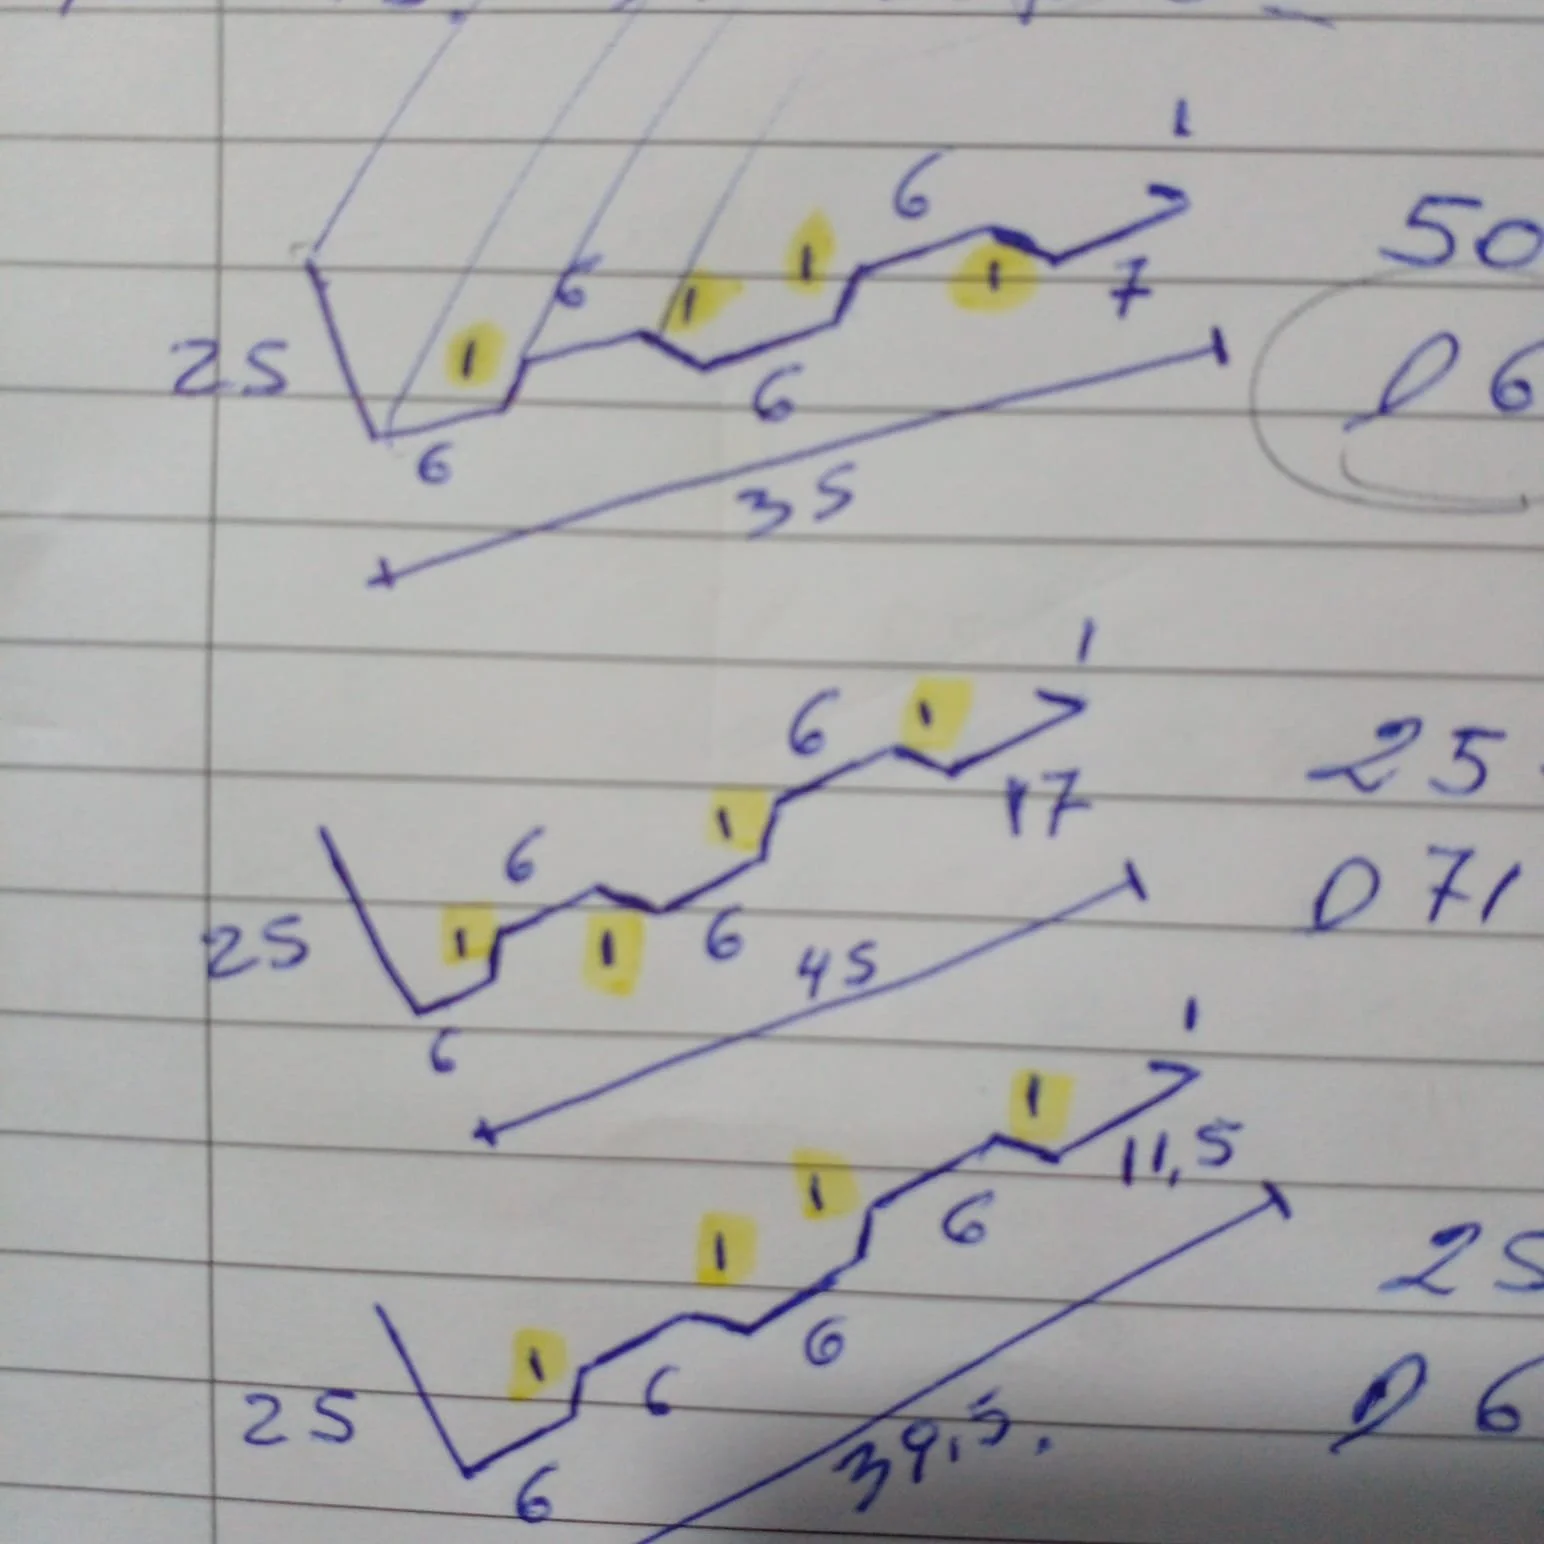 1
6
50
1
1
6
1
7
1
25
6
06
6
35
1
6
1
25
1
6
17
071
1
1
25
6
45
6
1
1
1
11,5
1
6
25
1
6
6
25
39,5.
06
6